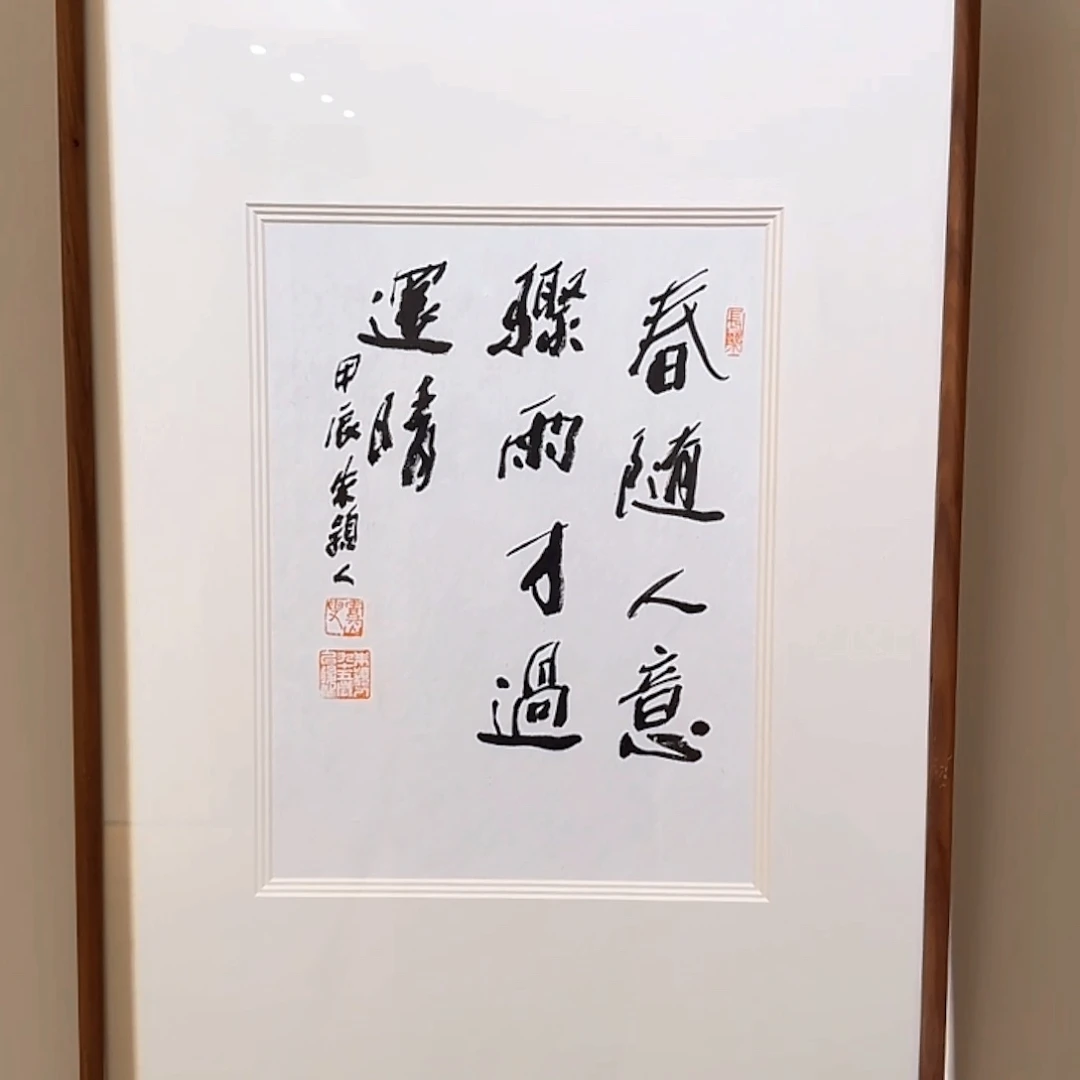 春随人意
驟雨才過
還晴
甲辰朱穎人
長樂